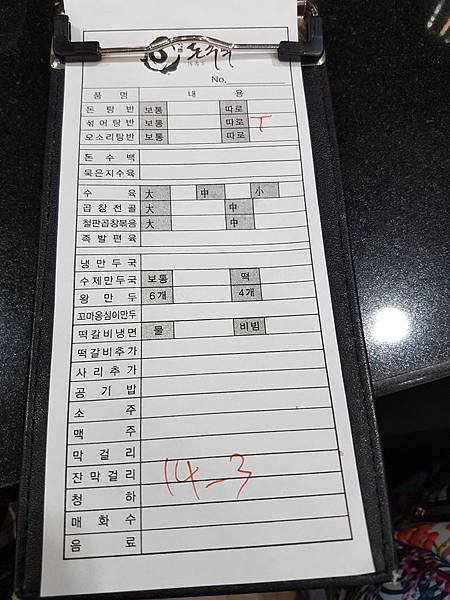 No.
품 명 내 용
돈 탕 반 보통 따로
섞어탕반 보통 따로 T
오소리탕반 보통 따로
돈 수 백
묵은지수육
수 육 大 中 小
곱창전골 大 中
철판곱창볶음 大 中
족발편육
냉만두국
수제만두국 보통 떡
왕 만 두 6개 4개
꼬마옹심이만두
떡갈비냉면 물 비빔
떡갈비추가
사리추가
공 기 밥
소 주
맥 주
막 걸 리
잔막걸리 14-3
청 하
매 화 수
음 료